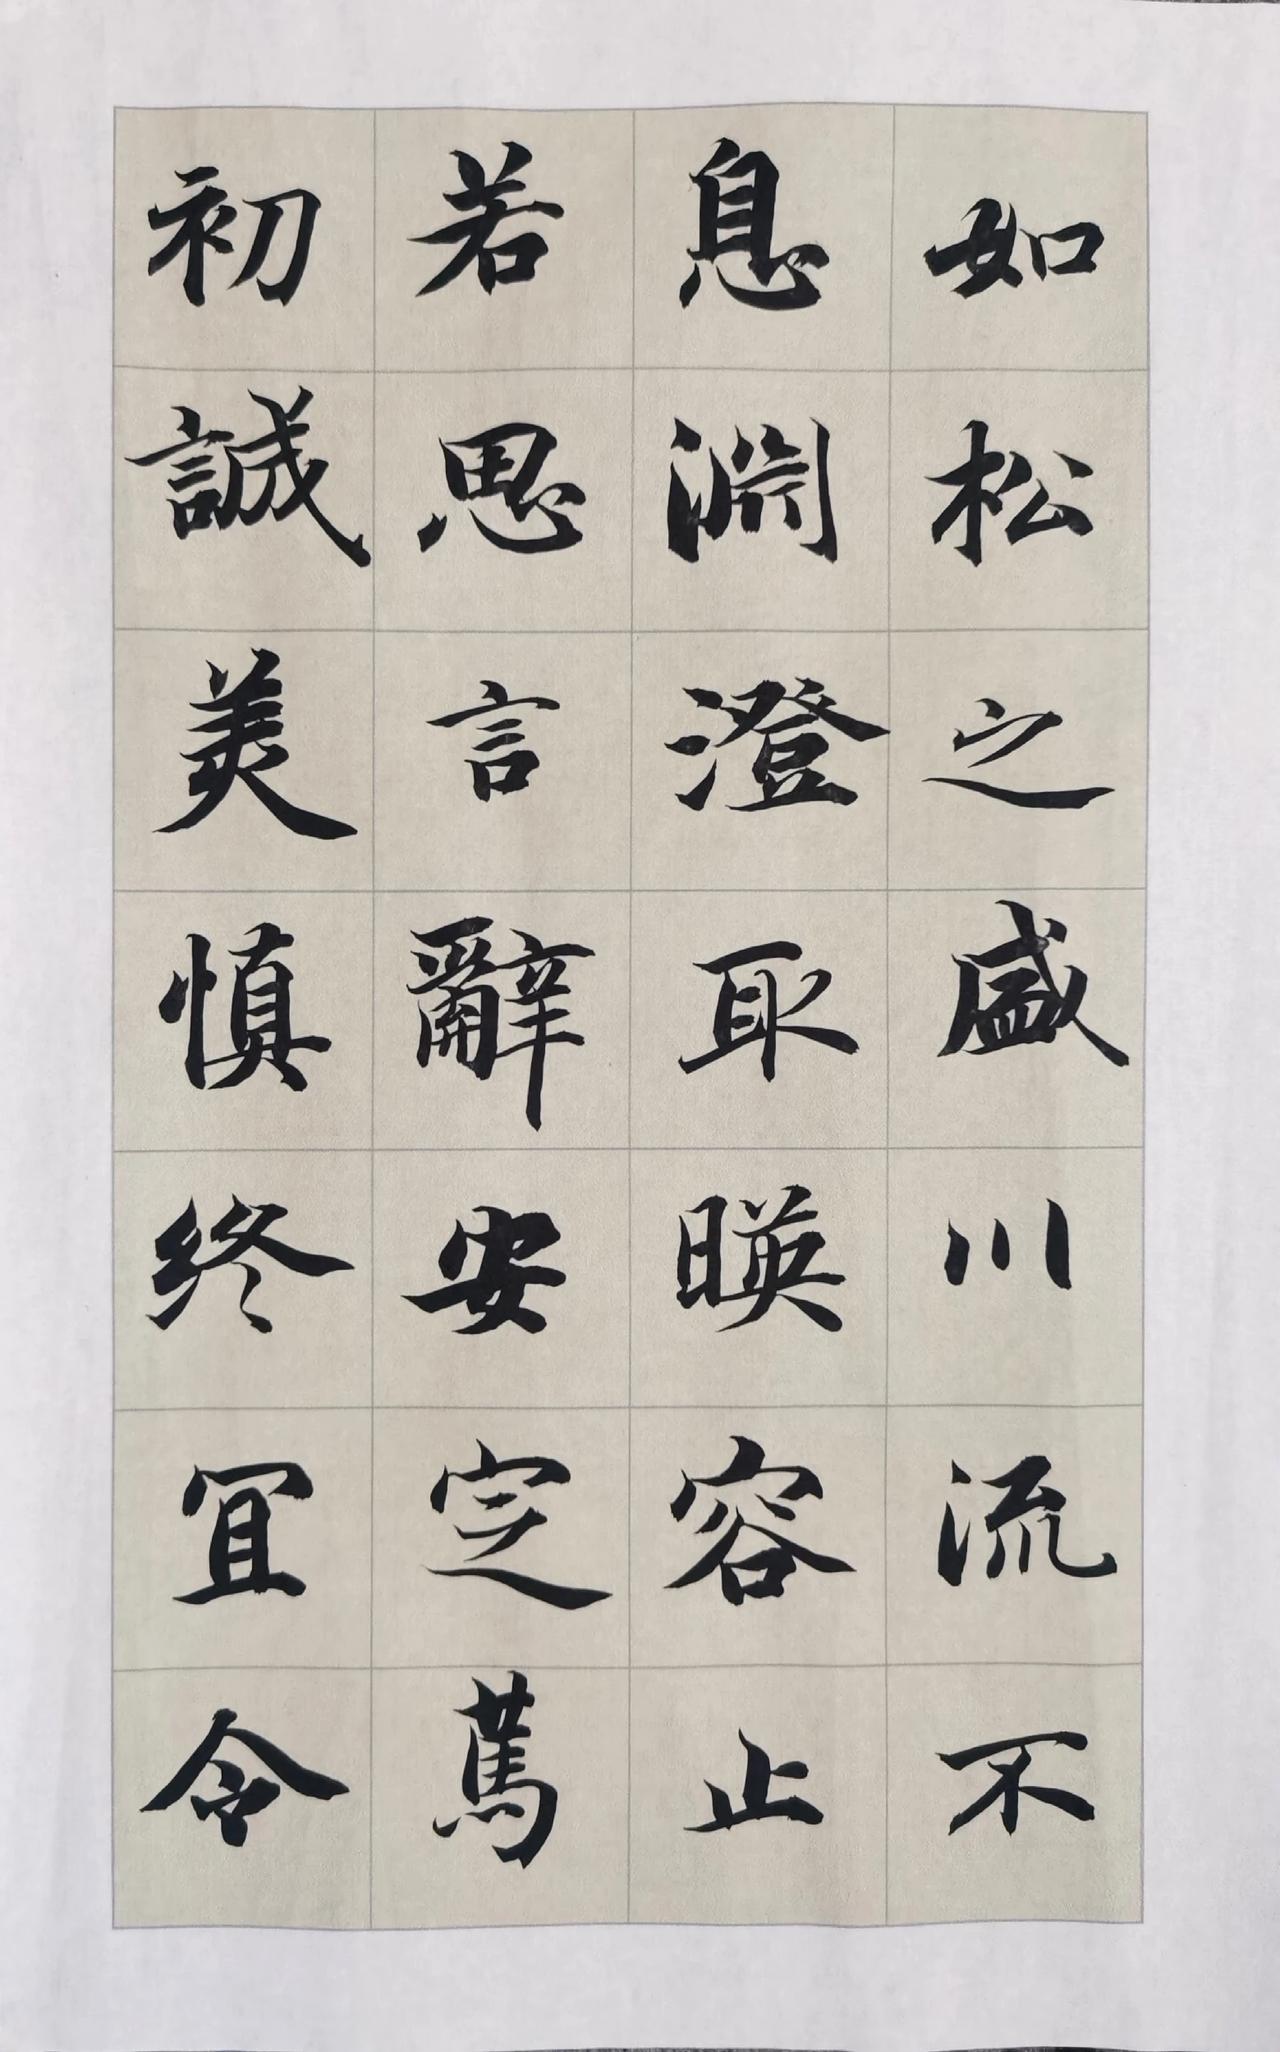 如松之盛川流不
息淵澄取暎容止
若思言辭安定篤
初誠美慎終宜令